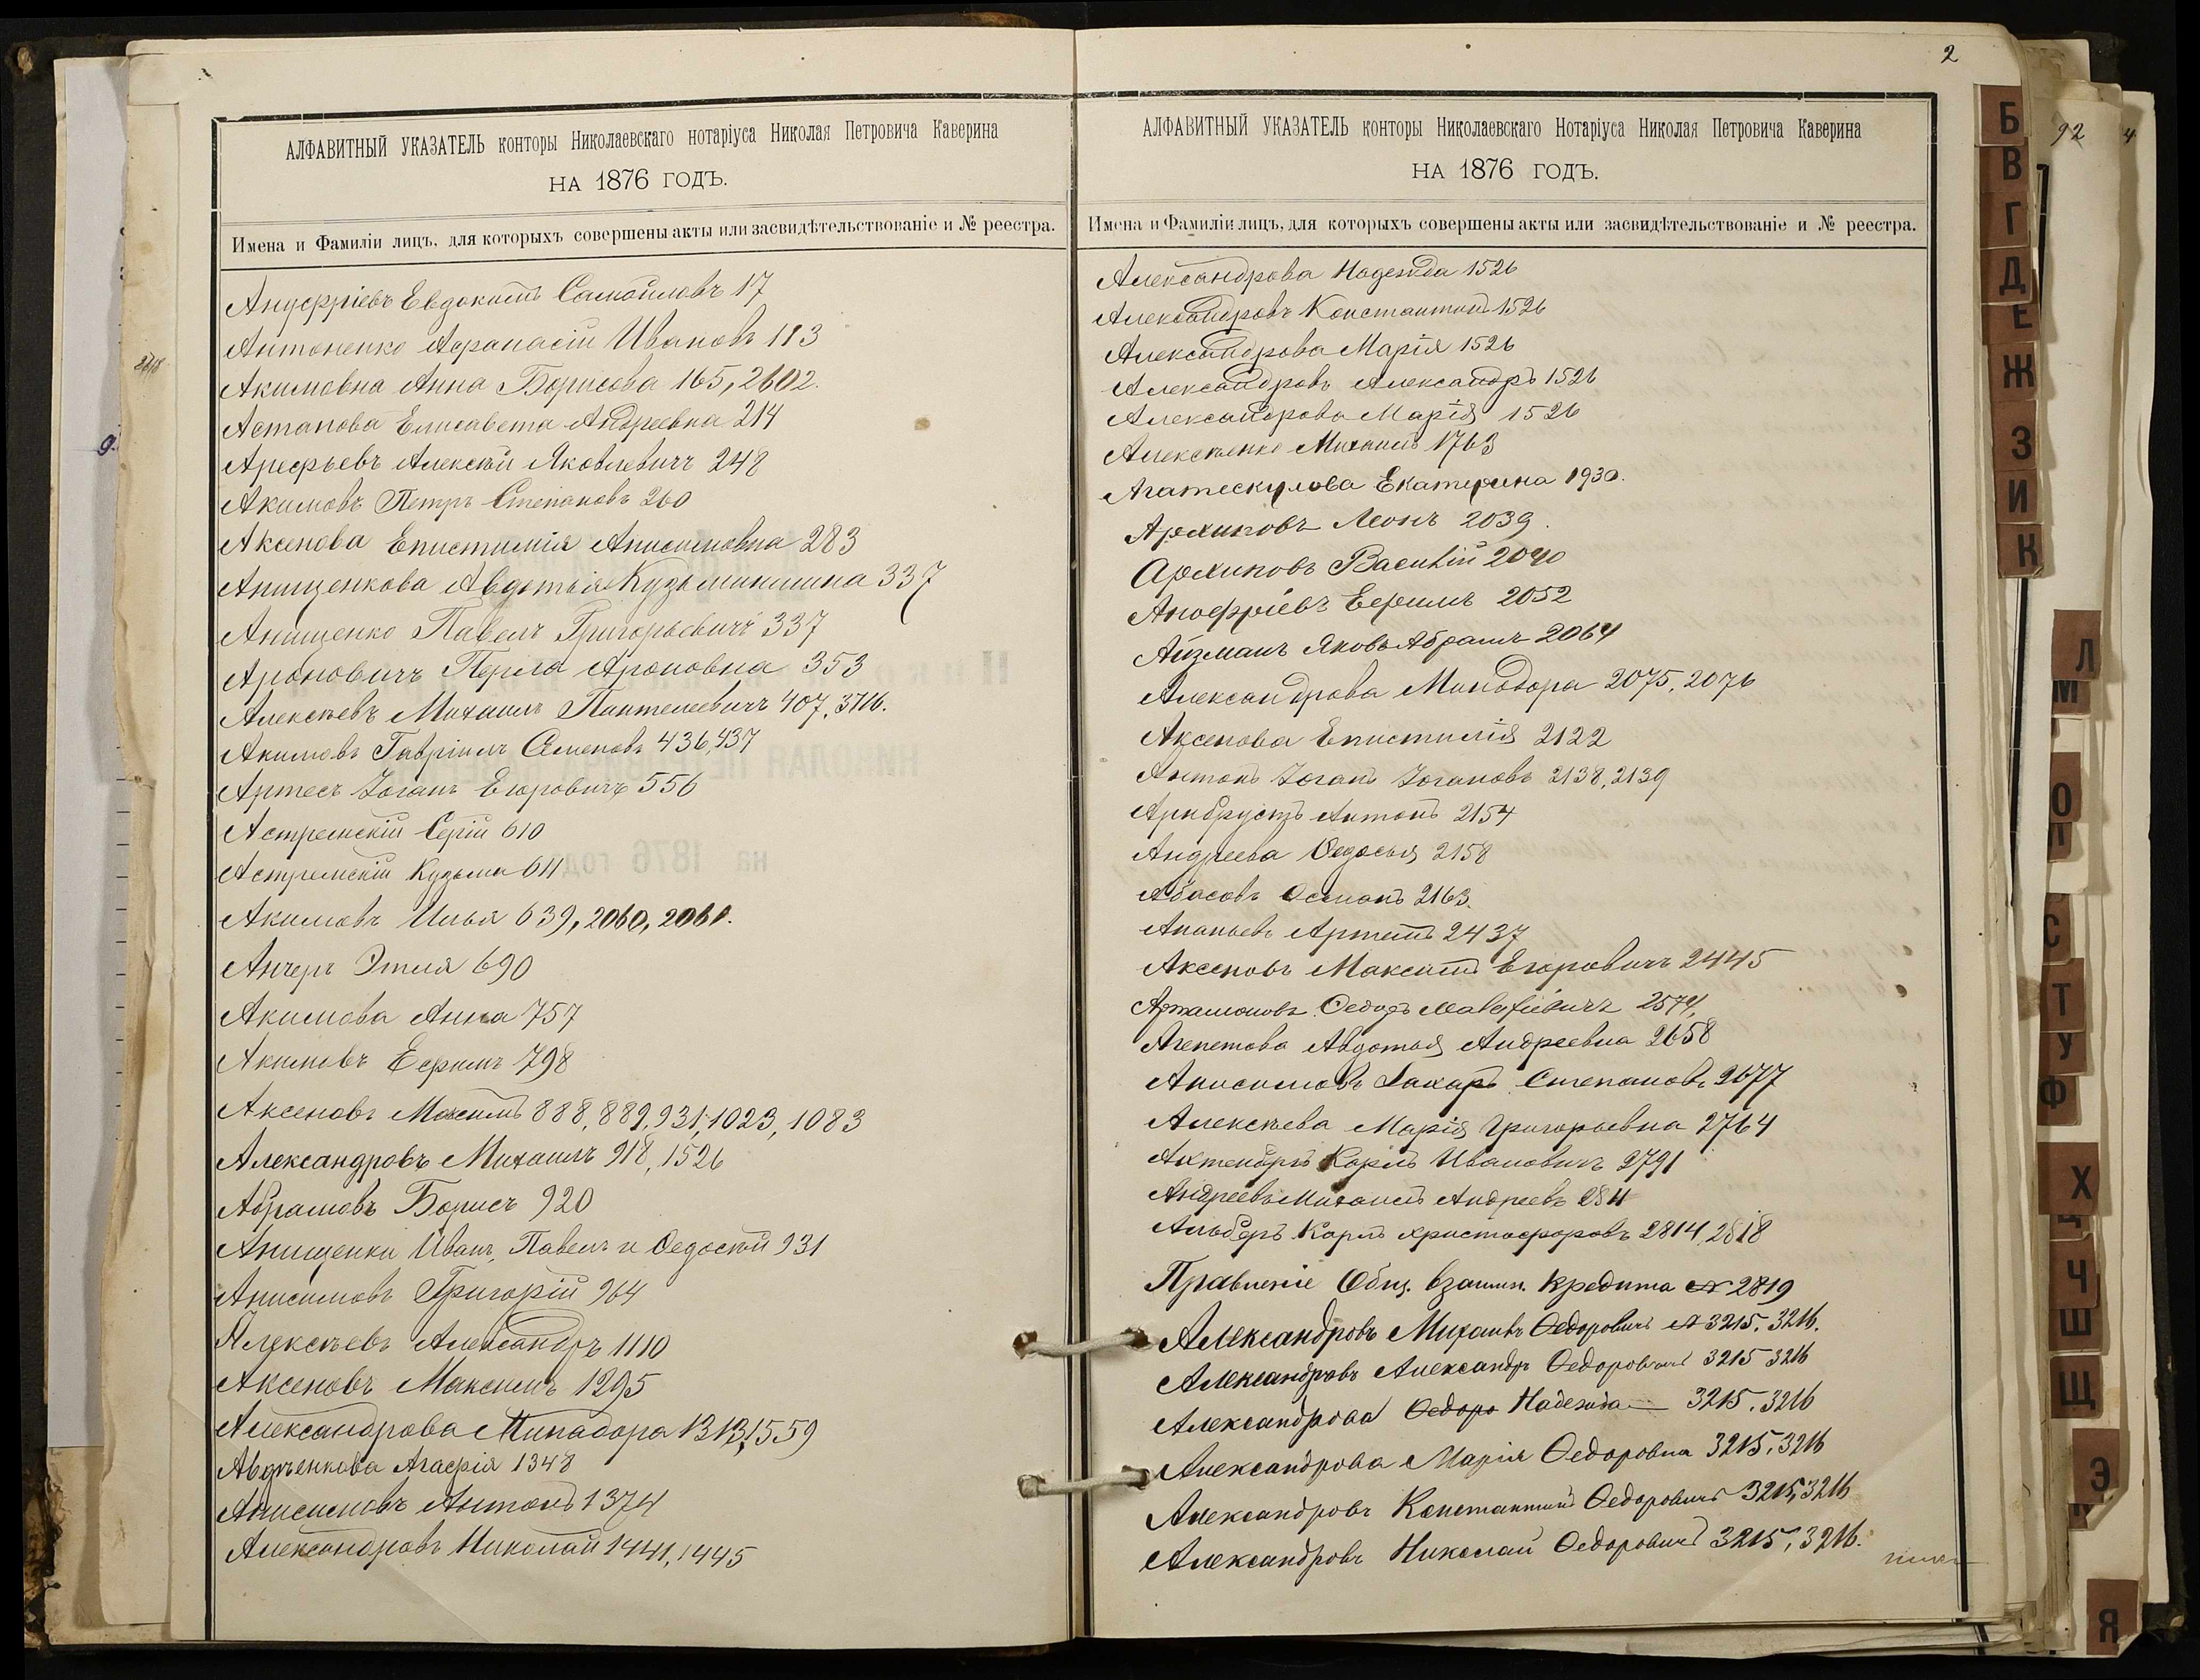 АЛФАВИТНЫЙ УКАЗАТЕЛЬ конторы Николаевскаго нотаріуса Николая Петровича Каверина
НА 1876 ГОДЪ.
Имена и Фамиліи лицъ, для которыхъ совершены акты или засвидѣтельствованіе и № реестра.
Ануфріевъ Евдокимъ Самойловъ 17
Антоненко Афанасій Ивановъ 113
Акимовна Анна Борисова 165, 2602.
Астапова Елисавета Андреевна 214
Арефьевъ Алексѣй Яковлевичъ 248
Акимовъ Петръ Степановъ 260
Аксенова Епистимія Анисимовна 283
Анищенкова Авдотья Кузьминишна 337
Анищенко Павелъ Григорьевичъ 337
Ароновичъ Перла Ароновна 353
Алексѣевъ Михаилъ Пантелеевичъ 407, 3716.
Акимовъ Гавріилъ Семеновъ 436, 437
Артесъ Іоганъ Егоровичъ 556
Астремскій Сергій 610
Астремскій Кузьма 611
Акимовъ Илья 639, 2060, 2061.
Анчеръ Этля 690
Акимова Анна 757
Акимовъ Ефимъ 798
Аксеновъ Максимъ 888, 889, 931, 1023, 1083
Александровъ Михаилъ 918, 1526
Абрамовъ Борисъ 920
Анищенки Иванъ, Павелъ и Ѳедосѣй 931
Анисимовъ Григорій 964
Алексѣевъ Александръ 1110
Аксеновъ Максимъ 1295
Александрова Минадора 1313, 1559
Авдѣенкова Агафія 1348
Анисимовъ Антонъ 1374
Александровъ Николай 1441, 1445
2
АЛФАВИТНЫЙ УКАЗАТЕЛЬ конторы Николаевскаго Нотаріуса Николая Петровича Каверина
НА 1876 ГОДЪ.
Имена и Фамиліи лицъ, для которыхъ совершены акты или засвидѣтельствованіе и № реестра.
Александрова Надежда 1526
Александровъ Константинъ 1526
Александрова Марія 1526
Александровъ Александръ 1526
Александрова Марія 1526
Алексѣенко Михаилъ 1763
Екатерина 1930.
Архиповъ Леонъ 2039.
Архиповъ Василій 2040
Анофріевъ Ефимъ 2052
Айзманъ Яковъ Абрамъ 2064
Александрова Минодора 2075, 2076
Аксенова Епистимія 2122
Антонъ Іоганъ Іогановъ 2138, 2139
Армбрустъ Антонъ 2154
Андреева Ѳедосья 2158
Абасовъ Османъ 2163.
Ананьевъ Артемъ 2437
Аксеновъ Максимъ Егоровичъ 2445
Артамоновъ Ѳедоръ 2574,
Агепетова Авдотья Андреевна 2658
Анисимовъ Захаръ Степановъ 2677
Алексѣева Марія Григорьевна 2764
Карлъ Ивановичъ 2791
Андреевъ Михаилъ Андреевъ 2811
Карлъ Христофоровъ 2814, 2818
Правленіе Общ. взаимн. Кредита № 2819
Александровъ Михаилъ Ѳедоровичъ № 3215, 3216.
Александровъ Александръ Ѳедоровичъ 3215 3216
Александрова Ѳедоро Надежда — 3215, 3216
Александрова Марія Ѳедоровна 3215, 3216
Александровъ Константинъ Ѳедоровичъ 3215, 3216
Александровъ Николай Ѳедоровичъ 3215, 3216.
92
4
Б
В
Г
Д
Е
Ж
З
И
К
Л
М
О
П
С
Т
У
Ф
Х
Ц
Ч
Ш
Щ
Э
Я